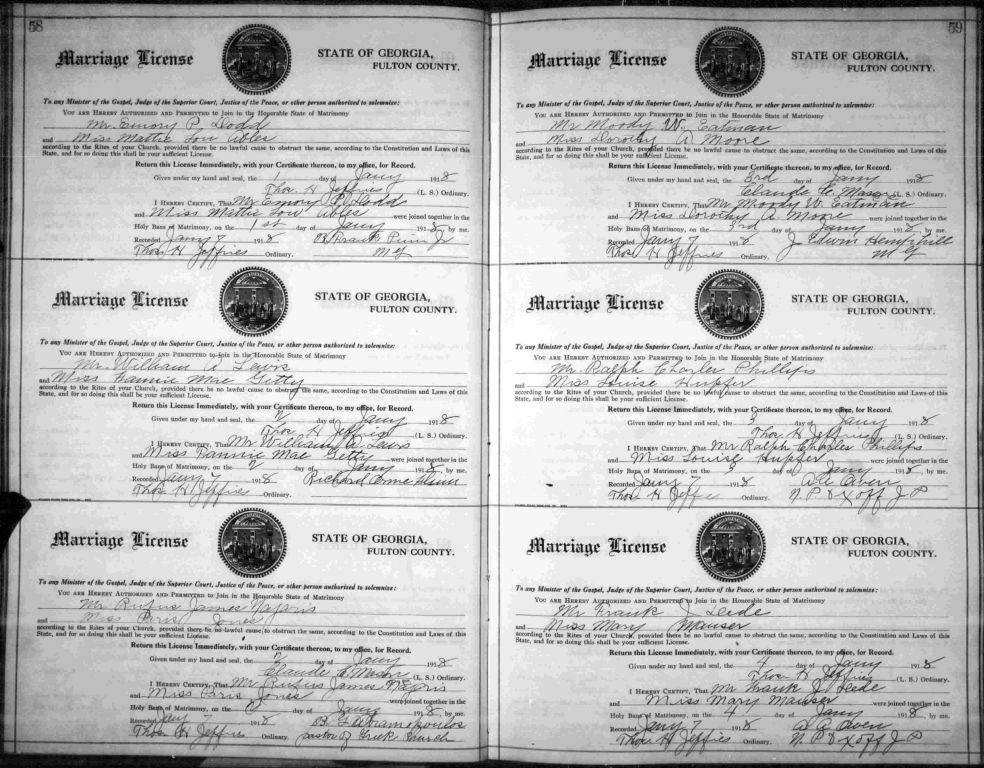 58
Marriage License
STATE OF GEORGIA,
FULTON COUNTY.
To any Minister of the Gospel, Judge of the Superior Court, Justice of the Peace, or other person authorized to solemnize:
YOU ARE HEREBY AUTHORIZED AND PERMITTED to Join in the Honorable State of Matrimony
Mr. Emory P. Dodd
and Miss Mattie Lou Ables
according to the Rites of your Church, provided there be no lawful cause to obstruct the same, according to the Constitution and Laws of this
State, and for so doing this shall be your sufficient License.
Return this License Immediately, with your Certificate thereon, to my office, for Record.
Given under my hand and seal, the 1 day of Jany 1918
Thos. H Jeffries (L. S.) Ordinary.
I HEREBY CERTIFY, That Mr Emory P. Dodd
and Miss Mattie Lou Ables were joined together in the
Holy Bans of Matrimony, on the 1st day of Jany 1918, by me.
Recorded Jany 7 1918 Frank
Thos H Jeffries Ordinary. M G
Marriage License
STATE OF GEORGIA,
FULTON COUNTY.
To any Minister of the Gospel, Judge of the Superior Court, Justice of the Peace, or other person authorized to solemnize:
YOU ARE HEREBY AUTHORIZED AND PERMITTED to Join in the Honorable State of Matrimony
Mr. William A
and Miss Fannie Mae Getty
according to the Rites of your Church, provided there be no lawful cause to obstruct the same, according to the Constitution and Laws of this
State, and for so doing this shall be your sufficient License.
Return this License Immediately, with your Certificate thereon, to my office, for Record.
Given under my hand and seal, the 2 day of Jany 1918
Thos. H Jeffries (L. S.) Ordinary.
I HEREBY CERTIFY, That Mr William A
and Miss Fannie Mae Getty were joined together in the
Holy Bans of Matrimony, on the 2 day of Jany 1918, by me.
Recorded Jany 7 1918 Richard Orme Flinn
Thos H Jeffries Ordinary.
Marriage License
STATE OF GEORGIA,
FULTON COUNTY.
To any Minister of the Gospel, Judge of the Superior Court, Justice of the Peace, or other person authorized to solemnize:
YOU ARE HEREBY AUTHORIZED AND PERMITTED to Join in the Honorable State of Matrimony
Mr Rufus James Najoris
and Miss Jones
according to the Rites of your Church, provided there be no lawful cause to obstruct the same, according to the Constitution and Laws of this
State, and for so doing this shall be your sufficient License.
Return this License Immediately, with your Certificate thereon, to my office, for Record.
Given under my hand and seal, the 2 day of Jany 1918
Claude C Mason (L. S.) Ordinary.
I HEREBY CERTIFY, That Mr Rufus James
and Miss Jones were joined together in the
Holy Bans of Matrimony, on the day of Jany 1918, by me.
Recorded Jany 7 1918
Thos H Jeffries Ordinary. Pastor of Greek Church
59
Marriage License
STATE OF GEORGIA,
FULTON COUNTY.
To any Minister of the Gospel, Judge of the Superior Court, Justice of the Peace, or other person authorized to solemnize:
YOU ARE HEREBY AUTHORIZED AND PERMITTED to Join in the Honorable State of Matrimony
Mr Moody W. Eatman
and Miss Dorothy A Moore
according to the Rites of your Church, provided there be no lawful cause to obstruct the same, according to the Constitution and Laws of this
State, and for so doing this shall be your sufficient License.
Return this License Immediately, with your Certificate thereon, to my office, for Record.
Given under my hand and seal, the 3rd day of Jany 1918
Claude C. Mason (L. S.) Ordinary.
I HEREBY CERTIFY, That Mr. Moody W. Eatman
and Miss Dorothy A Moore were joined together in the
Holy Bans of Matrimony, on the 3rd day of Jany 1918, by me.
Recorded Jany 7 1918 J Edwin Hemphill
Thos H Jeffries Ordinary. M G
Marriage License
STATE OF GEORGIA,
FULTON COUNTY.
To any Minister of the Gospel, Judge of the Superior Court, Justice of the Peace, or other person authorized to solemnize:
YOU ARE HEREBY AUTHORIZED AND PERMITTED to Join in the Honorable State of Matrimony
Mr. Ralph Charles Phillips
and Miss Louise Hupfer
according to the Rites of your Church, provided there be no lawful cause to obstruct the same, according to the Constitution and Laws of this
State, and for so doing this shall be your sufficient License.
Return this License Immediately, with your Certificate thereon, to my office, for Record.
Given under my hand and seal, the 3 day of Jany 1918
Thos H Jeffries (L. S.) Ordinary.
I HEREBY CERTIFY, That Mr Ralph Charles Phillips
and Miss Louise Hupfer were joined together in the
Holy Bans of Matrimony, on the 3 day of Jany 1918, by me.
Recorded Jany 7 1918 Owen
Thos H Jeffries Ordinary. N. P. & X off J P
Marriage License
STATE OF GEORGIA,
FULTON COUNTY.
To any Minister of the Gospel, Judge of the Superior Court, Justice of the Peace, or other person authorized to solemnize:
YOU ARE HEREBY AUTHORIZED AND PERMITTED to Join in the Honorable State of Matrimony
Mr Frank J Leide
and Miss Mary Mauser
according to the Rites of your Church, provided there be no lawful cause to obstruct the same, according to the Constitution and Laws of this
State, and for so doing this shall be your sufficient License.
Return this License Immediately, with your Certificate thereon, to my office, for Record.
Given under my hand and seal, the 4 day of Jany 1918
Thos H Jeffries (L. S.) Ordinary.
I HEREBY CERTIFY, That Mr Frank J Leide
and Miss Mary Mauser were joined together in the
Holy Bans of Matrimony, on the 4 day of Jany 1918, by me.
Recorded Jany 7 1918 Owen
Thos H Jeffries Ordinary. N. P. & X off J P